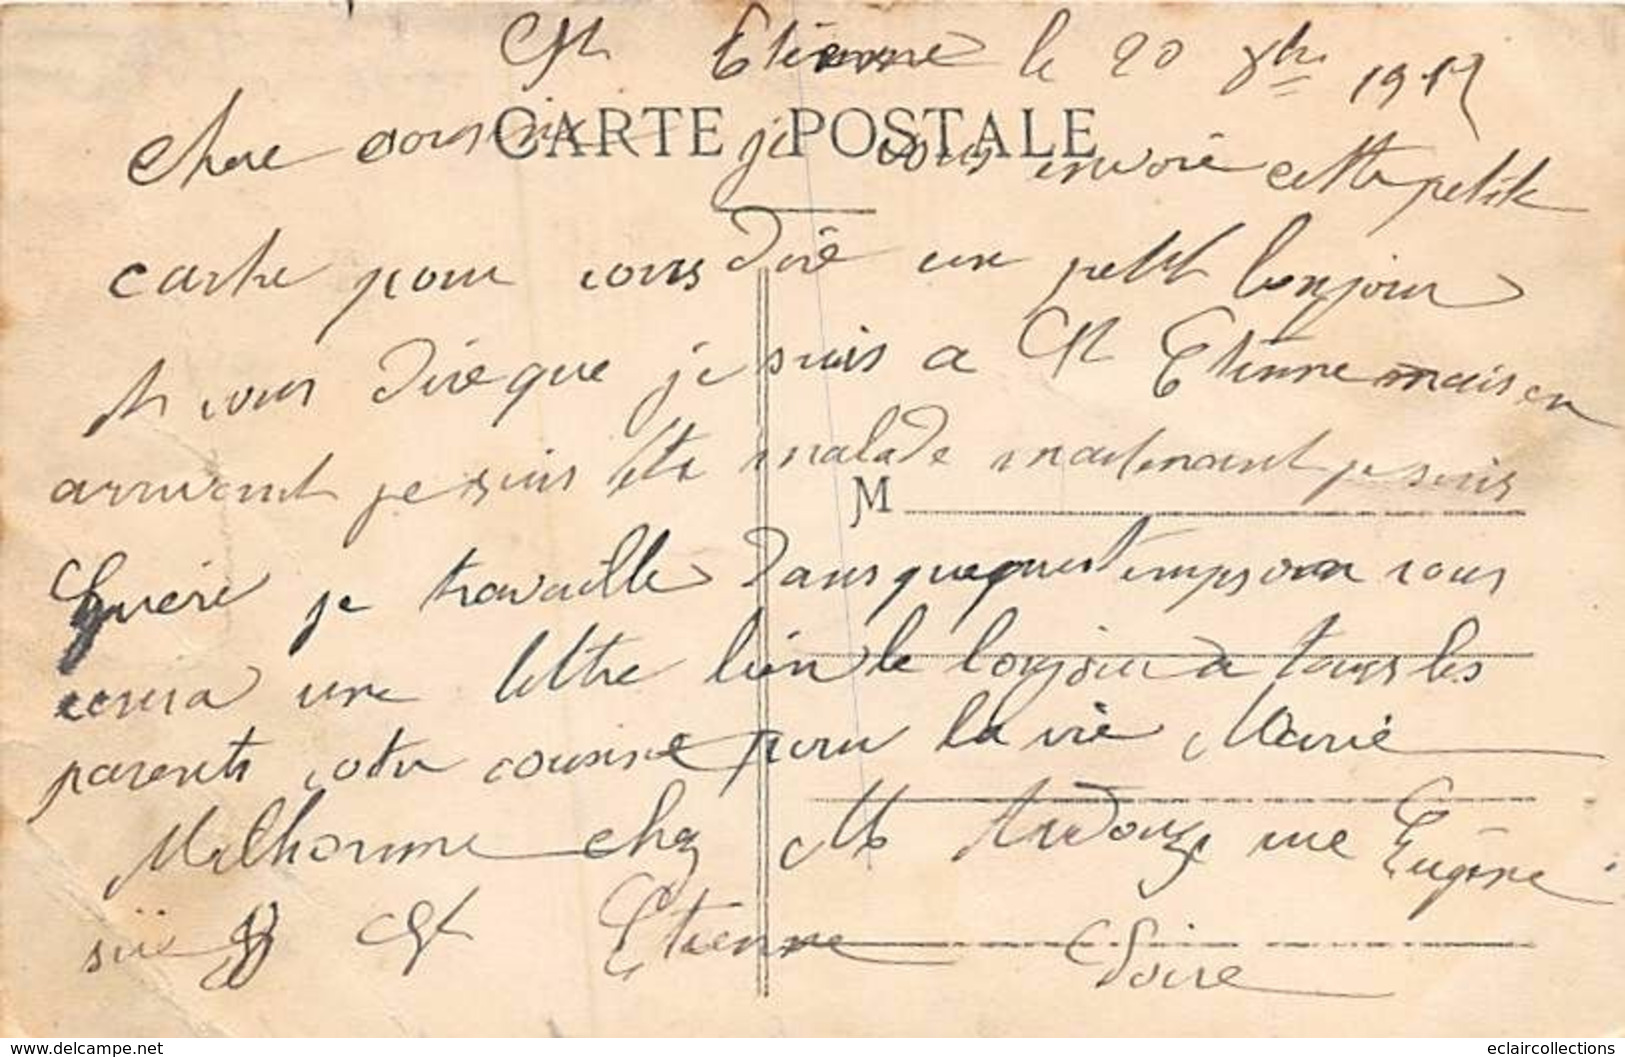 St Etienne le 20 8bre
CARTE POSTALE
Chere cousine je vous envoie cette petite
carte pour vous dire un petit bonjour
et vous dire que je suis a St Etienne mais en
arrivent je suis été malade maitenant je suis
guérie je travaille dans queques temps on vous
une lettre bien le bonjour a tous les
M
parents votre cousine pour la vie Marie
Malhomme chez M Ardouze rue Eugène
8 St Etienne Loire
www.delcampe.net
eclaircollections